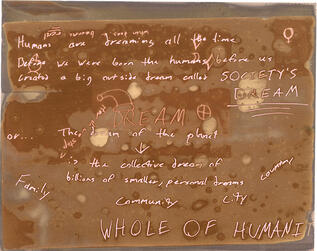 Humans are dreaming all the time
Before we were born the humans before us
created a big outside dream called SOCIETY'S
DREAM
DREAM
or... The dream of the planet
is the collective dream of
billions of smaller, personal dreams
Family Community City country
WHOLE OF HUMANIT